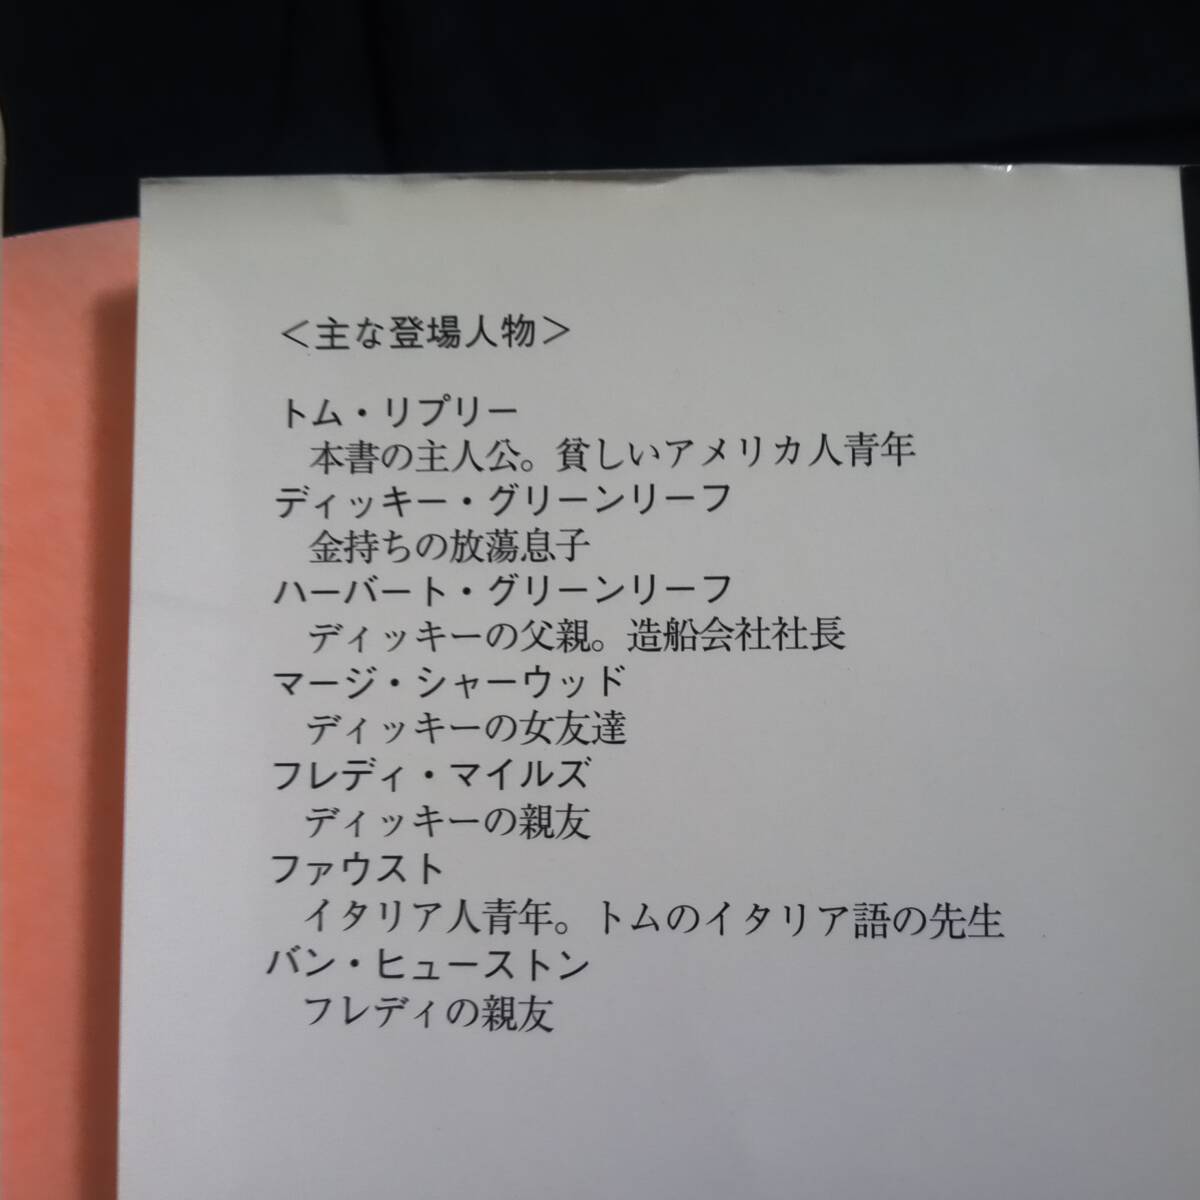 ＜主な登場人物＞
トム・リプリー
本書の主人公。貧しいアメリカ人青年
ディッキー・グリーンリーフ
金持ちの放蕩息子
ハーバート・グリーンリーフ
ディッキーの父親。造船会社社長
マージ・シャーウッド
ディッキーの女友達
フレディ・マイルズ
ディッキーの親友
ファウスト
イタリア人青年。トムのイタリア語の先生
バン・ヒューストン
フレディの親友